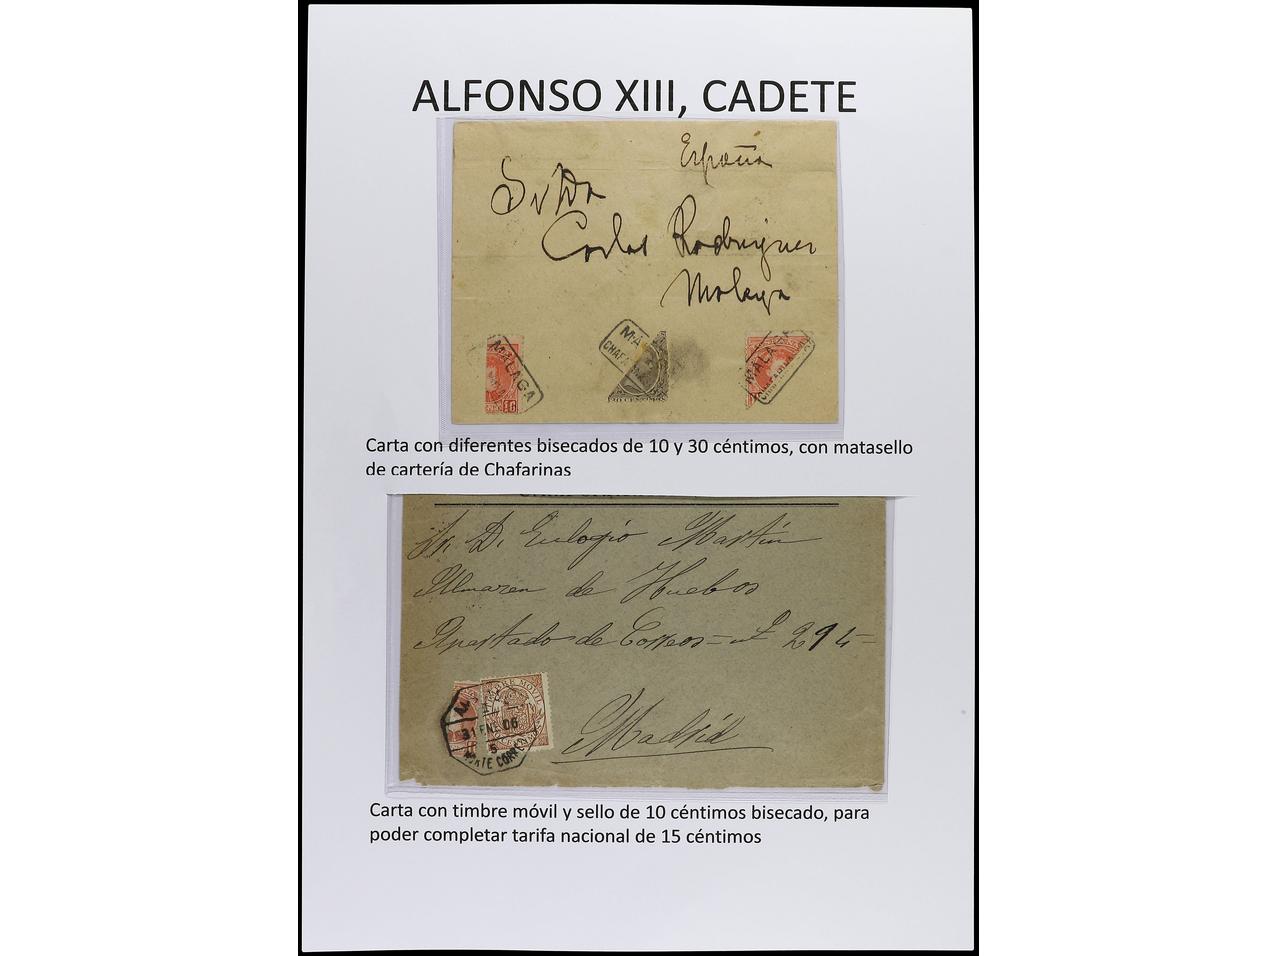 ALFONSO XIII, CADETE
España
Carlos Rodriguez
Malaga
MALAGA
MA
CHAFA
MALAGA
Carta con diferentes bisecados de 10 y 30 céntimos, con matasello
de cartería de Chafarinas
Sr. D. Eulogio Martin
Almacen de Huebos
Apartado de Correos = nº 294 =
TIMBRE MOVIL
31 ENE 06
5
NORTE CORREO
Madrid
Carta con timbre móvil y sello de 10 céntimos bisecado, para
poder completar tarifa nacional de 15 céntimos